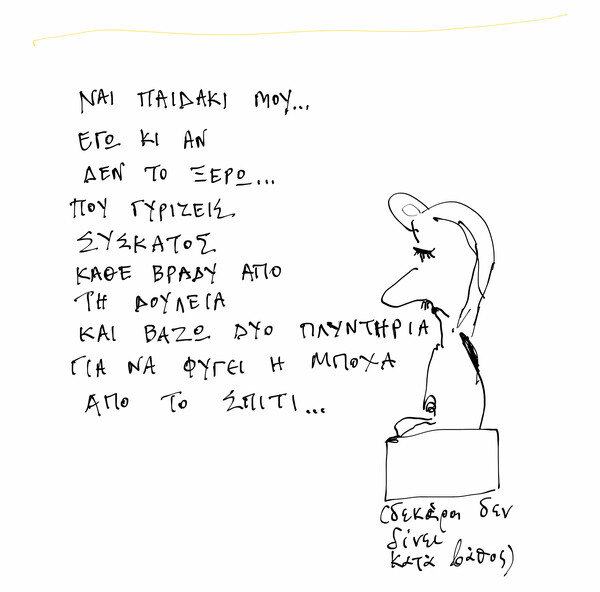 ΝΑΙ ΠΑΙΔΑΚΙ ΜΟΥ...
ΕΓΩ ΚΙ ΑΝ
ΔΕΝ ΤΟ ΞΕΡΩ...
ΠΟΥ ΓΥΡΙΖΕΙΣ
ΣΥΣΚΑΤΟΣ
ΚΑΘΕ ΒΡΑΔΥ ΑΠΟ
ΤΗ ΔΟΥΛΕΙΑ
ΚΑΙ ΒΑΖΩ ΔΥΟ ΠΛΥΝΤΗΡΙΑ
ΓΙΑ ΝΑ ΦΥΓΕΙ Η ΜΠΟΧΑ
ΑΠΟ ΤΟ ΣΠΙΤΙ...
(δεκάρα δεν
δίνει
κατά βάθος)